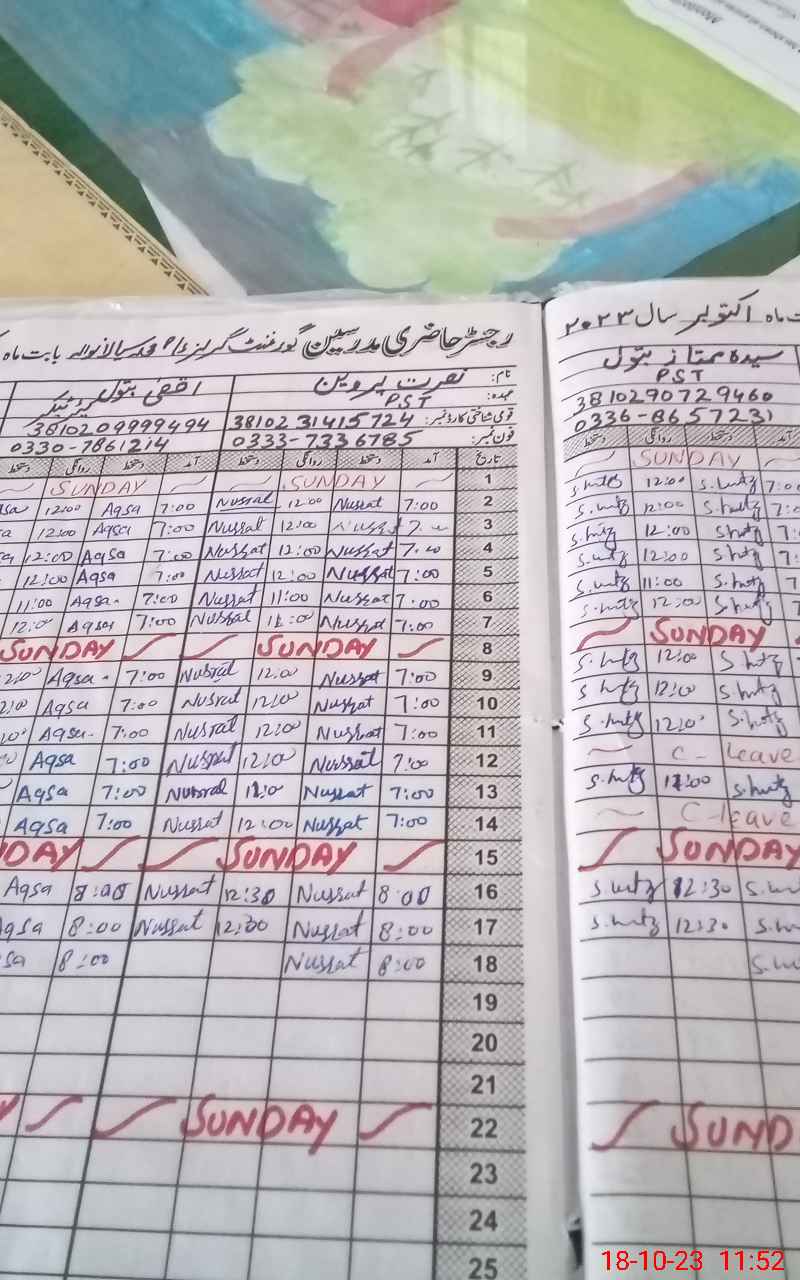 رجسٹر حاضری مدرسین گورنمنٹ گرلز بابت ماہ
نام: نصرت پروین اقصیٰ بتول
عہدہ: PST
قومی شناختی کارڈ نمبر: 38102 31415724 3810209999494
فون نمبر: 0333-7336785 0330-7861214
تاریخ آمد دستخط روانگی دستخط آمد دستخط روانگی دستخط
1 SUNDAY SUNDAY
2 7:00 Nussat 12:00 Nusrat 7:00 Aqsa 12:00
3 Nussat 12:00 Nussat 7:00 Aqsa 12:00
4 Nussat 12:00 Nussat 7:00 Aqsa 12:00
5 7:00 Nussat 12:00 Nussat 7:00 Aqsa 12:00
6 7:00 Nussat 11:00 Nussat 7:00 Aqsa 11:00
7 7:00 Nussat Nussat 7:00 Aqsa
8 SUNDAY SUNDAY
9 7:00 Nussat 12:00 Nusrat 7:00 Aqsa
10 7:00 Nussat 12:00 Nusrat 7:00 Aqsa
11 7:00 Nussat 12:00 Nusrat 7:00 Aqsa
12 7:00 Nussat 12:00 Nussat 7:00 Aqsa
13 7:00 Nussat Nusrat 7:00 Aqsa
14 7:00 Nussat 12:00 Nussat 7:00 Aqsa
15 SUNDAY
16 8:00 Nussat 12:30 Nussat 8:00 Aqsa
17 8:00 Nussat 12:30 Nussat 8:00 Aqsa
18 8:00 Nussat 8:00
19
20
21
22 SUNDAY
23
24
25
ماہ اکتوبر سال ۲۰۲۳
سیدہ ممتاز بتول
PST
3810290729460
0336-8657231
آمد دستخط روانگی دستخط
SUNDAY
S.mtz 12:00 S.mtz
S.mtz 12:00 S.mtz
S.mtz 12:00 S.mtz
S.mtz 12:00 S.mtz
S.mtz 11:00 S.mtz
S.mtz 12:00 S.mtz
SUNDAY
S.mtz 12:00 S.mtz
S.mtz 12:00 S.mtz
S.mtz 12:00 S.mtz
C-leave
S.mtz S.mtz
C-leave
SUNDAY
S.mtz 12:30
S.mtz 12:30
18-10-23 11:52